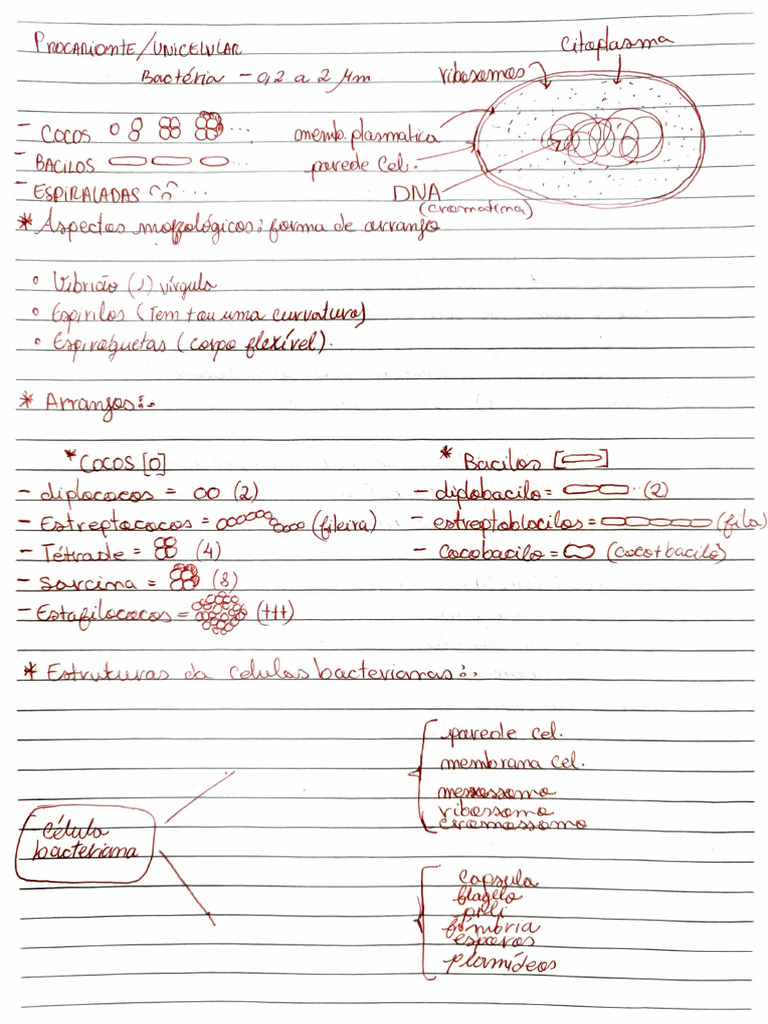 PROCARIONTE/UNICELULAR
Bactéria - 0,2 a 2 µm
citoplasma
ribosomos
memb. plasmatica
parede Cel.
DNA
(cromatima)
- COCOS ...
- BACILOS ...
- ESPIRALADAS ...
* Aspectos morfológicos: forma de arranjo
• Vibrião (,) vírgula
• Espirilos (Tem tau uma curvatura)
• Espiroquetas (corpo flexível).
* Arranjos:.
* COCOS [0]
- diplococos = (2)
- Estreptococos = (fileira)
- Tétrade = (4)
- sarcina = (8)
- Estafilococos = (+++)
* Bacilos [ ]
- diplobacilo = (2)
- estreptoblocilos = (fila)
- Cocobacilo = (coco+bacilo)
* Estruturas da células bacterianas:.
célula
bacteriana
parede cel.
membrana cel.
mesossomo
ribossomo
cromossomo
capsula
flagelo
pili
fímbria
esporos
plamídeos